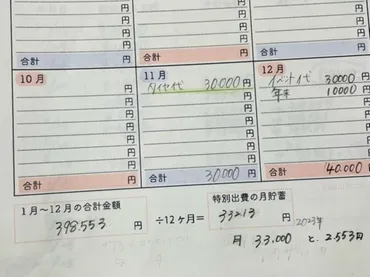 円 円 円
円 円 円
円 円 円
円 円 円
合計 円 合計 円 合計 円
10月 11月 12月
円 タイヤ代 30000 円 イベント代 30000 円
円 円 年末 10000 円
円 円 円
円 円 円
円 円 円
円 円 円
円 円 円
合計 円 合計 30,000 円 合計 40,000 円
1月〜12月の合計金額 特別出費の月貯蓄
398,553 円 ÷12ヶ月= 33213 円 2023年
月 33,000 と 2,553円